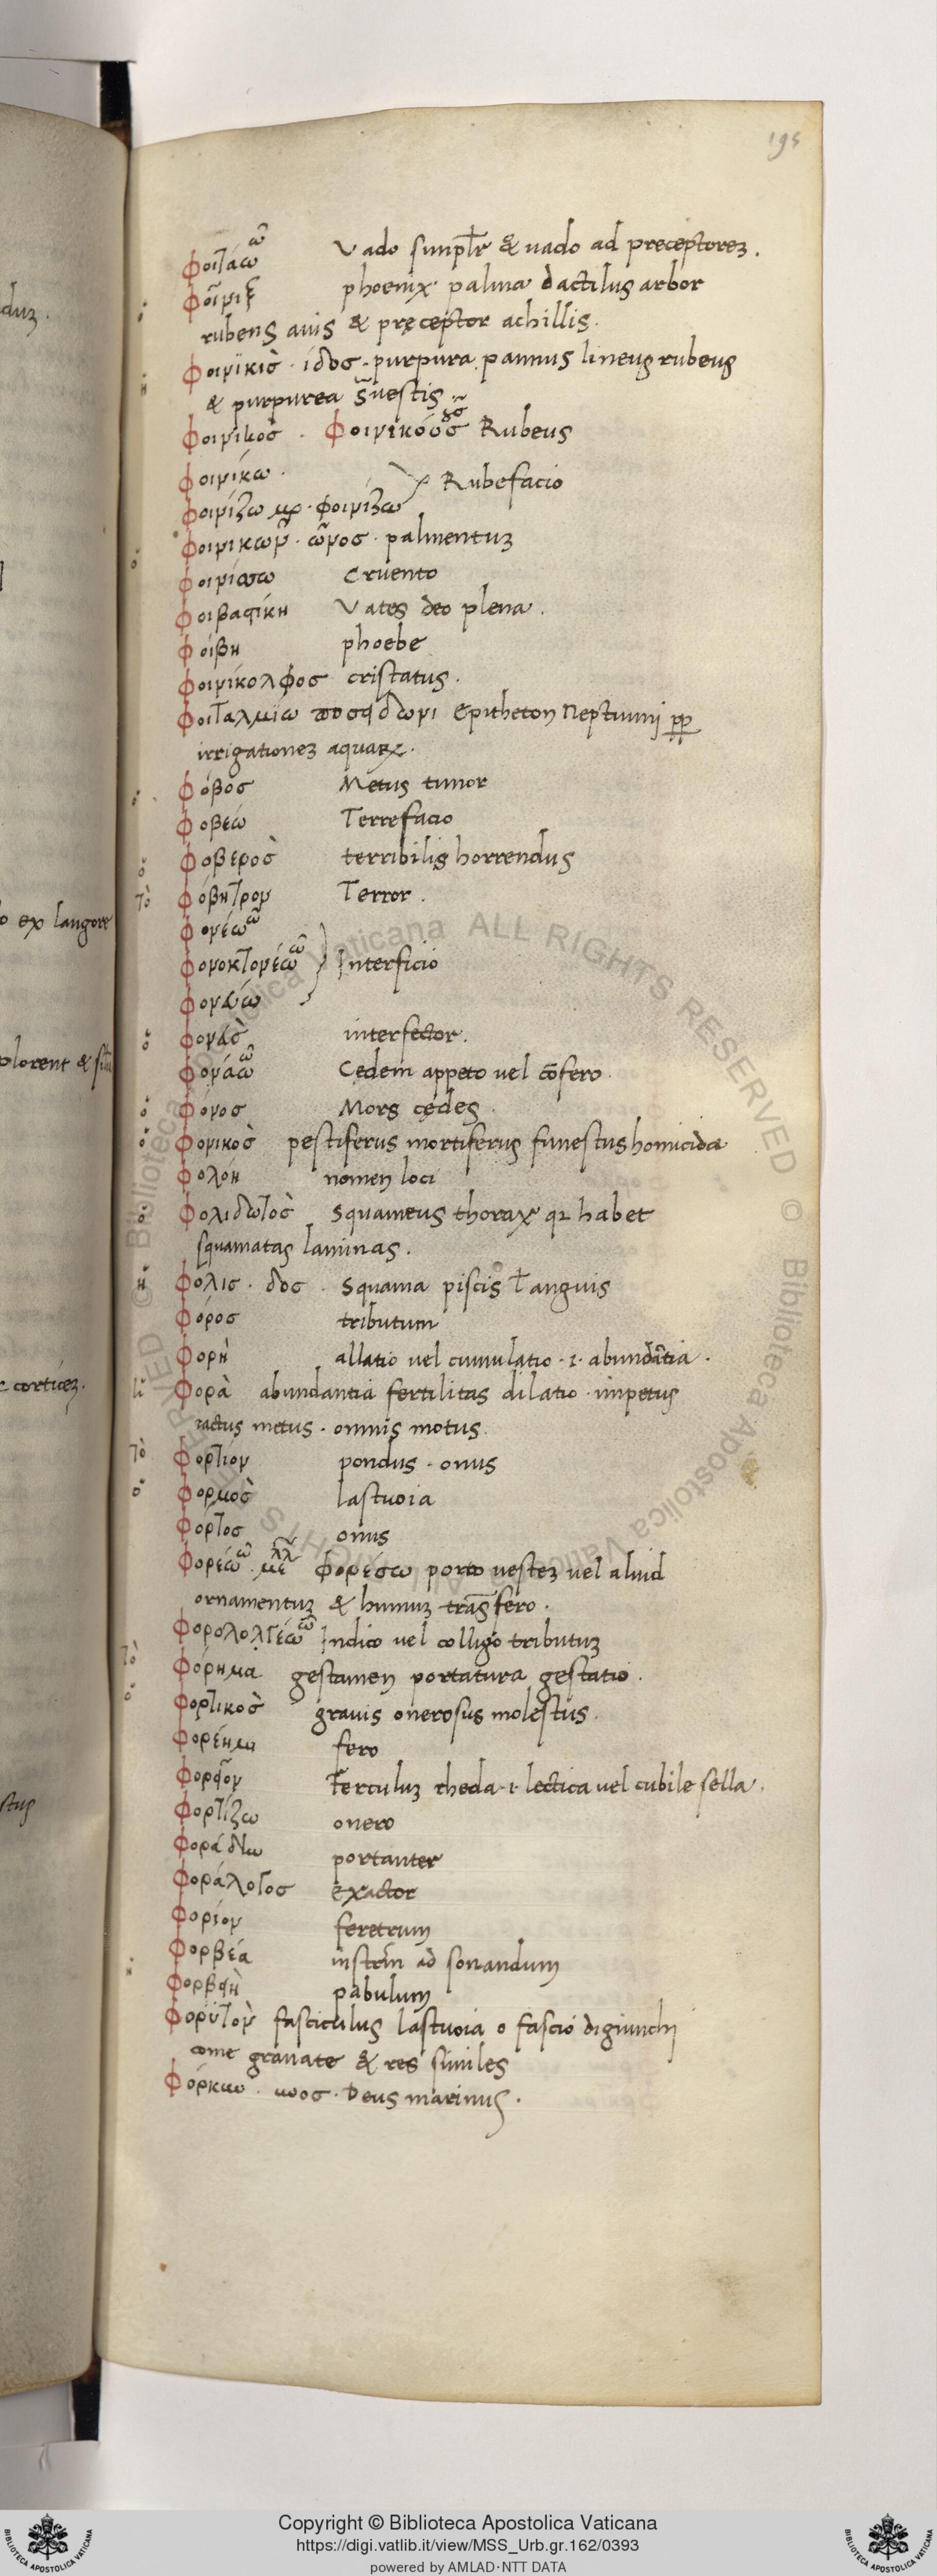 195
φοιτάω ῶ Vado simplr & uado ad preceptorez.
ὁ φοῖνιξ phoenix palma dactilus arbor
rubens auis & pręceptor achillis.
ἡ φοινϊκὶσ · ίδοσ · purpura pannus lineus rubeus
& purpurea vestis
φοινικοσ . φοινικόυσ Rubeus
φοινίκω .
φοινίζω φοινίζω Rubefacio
ὁ φοινικων · ῶνοσ · palmentuz
φοινίσσω Cruento
φοιβαστίκη Vates deo plena.
φοίβη phoebe
φοινίκολφοσ cristatus.
φοιταλμίω Epitheton Neptunnj pp
irrigationez aquarz.
ὁ φόβοσ Metus timor
φοβέω Terrefacio
ὁ φοβεροσ terribilis horrendus
τὸ φόβητρον Terror.
φονέω ῶ
φονοκτονέω ῶ Interficio
φονάω
ὁ φονὰσ interfector.
φονάω ῶ Cedem appeto vel cōfero.
ὁ φόνοσ Mors cędes
ὁ φονικοσ pestiferus mortiferus funestus homicida
φολόη nomen loci
ὁ φολιδωτὸσ Squameus thorax qz habet
squamatas laminas.
ἡ φολισ · δοσ . Squama piscis ł anguis
φόροσ tributum
φορὴ allatio vel cumulatio · i · abundātia.
φορὰ abundantia fertilitas dilatio · impetus
ractus metus · omnis motus.
τὸ φορτίον pondus · onus
ὁ φορμοσ lastuoia
φορτοσ onus
φορέω ῶ . φορέσω porto uestez uel aliud
ornamentuz & humuz trāsfero.
φορολογέω ῶ Indico vel colligo tributuz
τὸ φόρημα gestamen portatura gestatio.
ὁ φορτικοσ grauis onerosus molestus.
φορέημι fero
φορεῖον Ferculuz rheda · i · lectica uel cubile sella.
φορτίζω onero
φοράδην portanter
φοράλογοσ exactor
φορίον feretrum
φορβέα instrm ad sonandum
ἡ φορβὴ pabulum
φορύτον fasciculus lastuoia o fascio digiunchj
come granate & res similes
φόρκυν . υνοσ · Deus marinus.
Copyright © Biblioteca Apostolica Vaticana
https://digi.vatlib.it/view/MSS_Urb.gr.162/0393
powered by AMLAD·NTT DATA